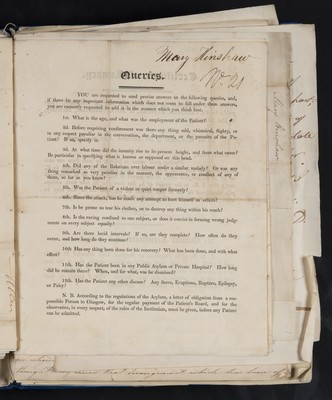 Mary Kinshaw
Queries.
YOU are requested to send precise answers to the following queries, and,
if there be any important information which does not come to fall under them answers,
you are earnestly requested to add it in the manner which you think best.
1st. What is the age, and what was the employment of the Patient?
2d. Before requiring confinement was there any thing odd, whimsical, flighty, or
in any respect peculiar in the conversation, the deportment, or the pursuits of the Pa-
tient? If so, specify it.
3d. At what time did the insanity rise to its present height, and from what cause?
Be particular in specifying what is known or supposed on this head.
4th. Did any of the Relations ever labour under a similar malady? Or was any
thing remarked as very peculiar in the manner, the appearance, or conduct of any of
them, so far as you know?
5th. Was the Patient of a violent or quiet temper formerly?
6th. Since the attack, has he made any attempt to hurt himself or others?
7th. Is he prone to tear his clothes, or to destroy any thing within his reach?
8th. Is the raving confined to one subject, or does it consist in forming wrong judg-
ments on every subject equally?
9th. Are there lucid intervals? If so, are they complete? How often do they
occur, and how long do they continue?
10th Has any thing been done for his recovery? What has been done, and with what
effect?
11th. Has the Patient been in any Public Asylum or Private Hospital? How long
did he remain there? When, and for what, was he dismissed?
12th. Has the Patient any other disease? Any Sores, Eruptions, Rupture, Epilepsy,
or Palsy?
N. B. According to the regulations of the Asylum, a letter of obligation from a res-
ponsible Person in Glasgow, for the regular payment of the Patient's Board, and for the
observance, in every respect, of the rules of the Institution, must be given, before any Patient
can be admitted.